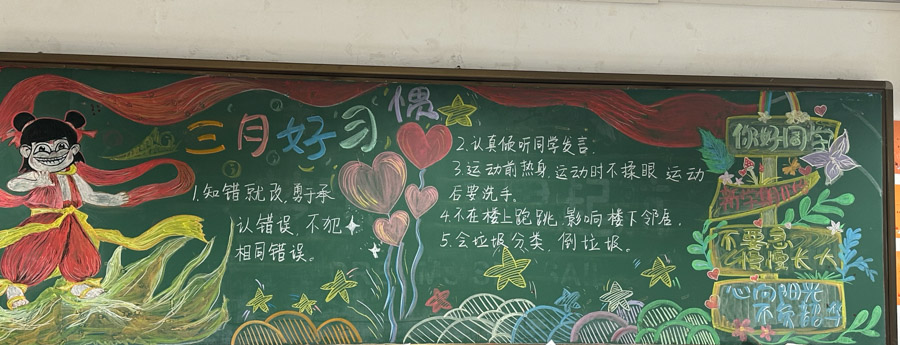 三月好习惯
1.知错就改,勇于承
认错误,不犯
相同错误。
2.认真倾听同学发言.
3.运动前热身,运动时不揉眼 运动
后要洗手。
4.不在楼上跑跳,影响楼下邻居.
5.会垃圾分类,倒垃圾。
你好同学
不要急
慢慢长大
心向阳光